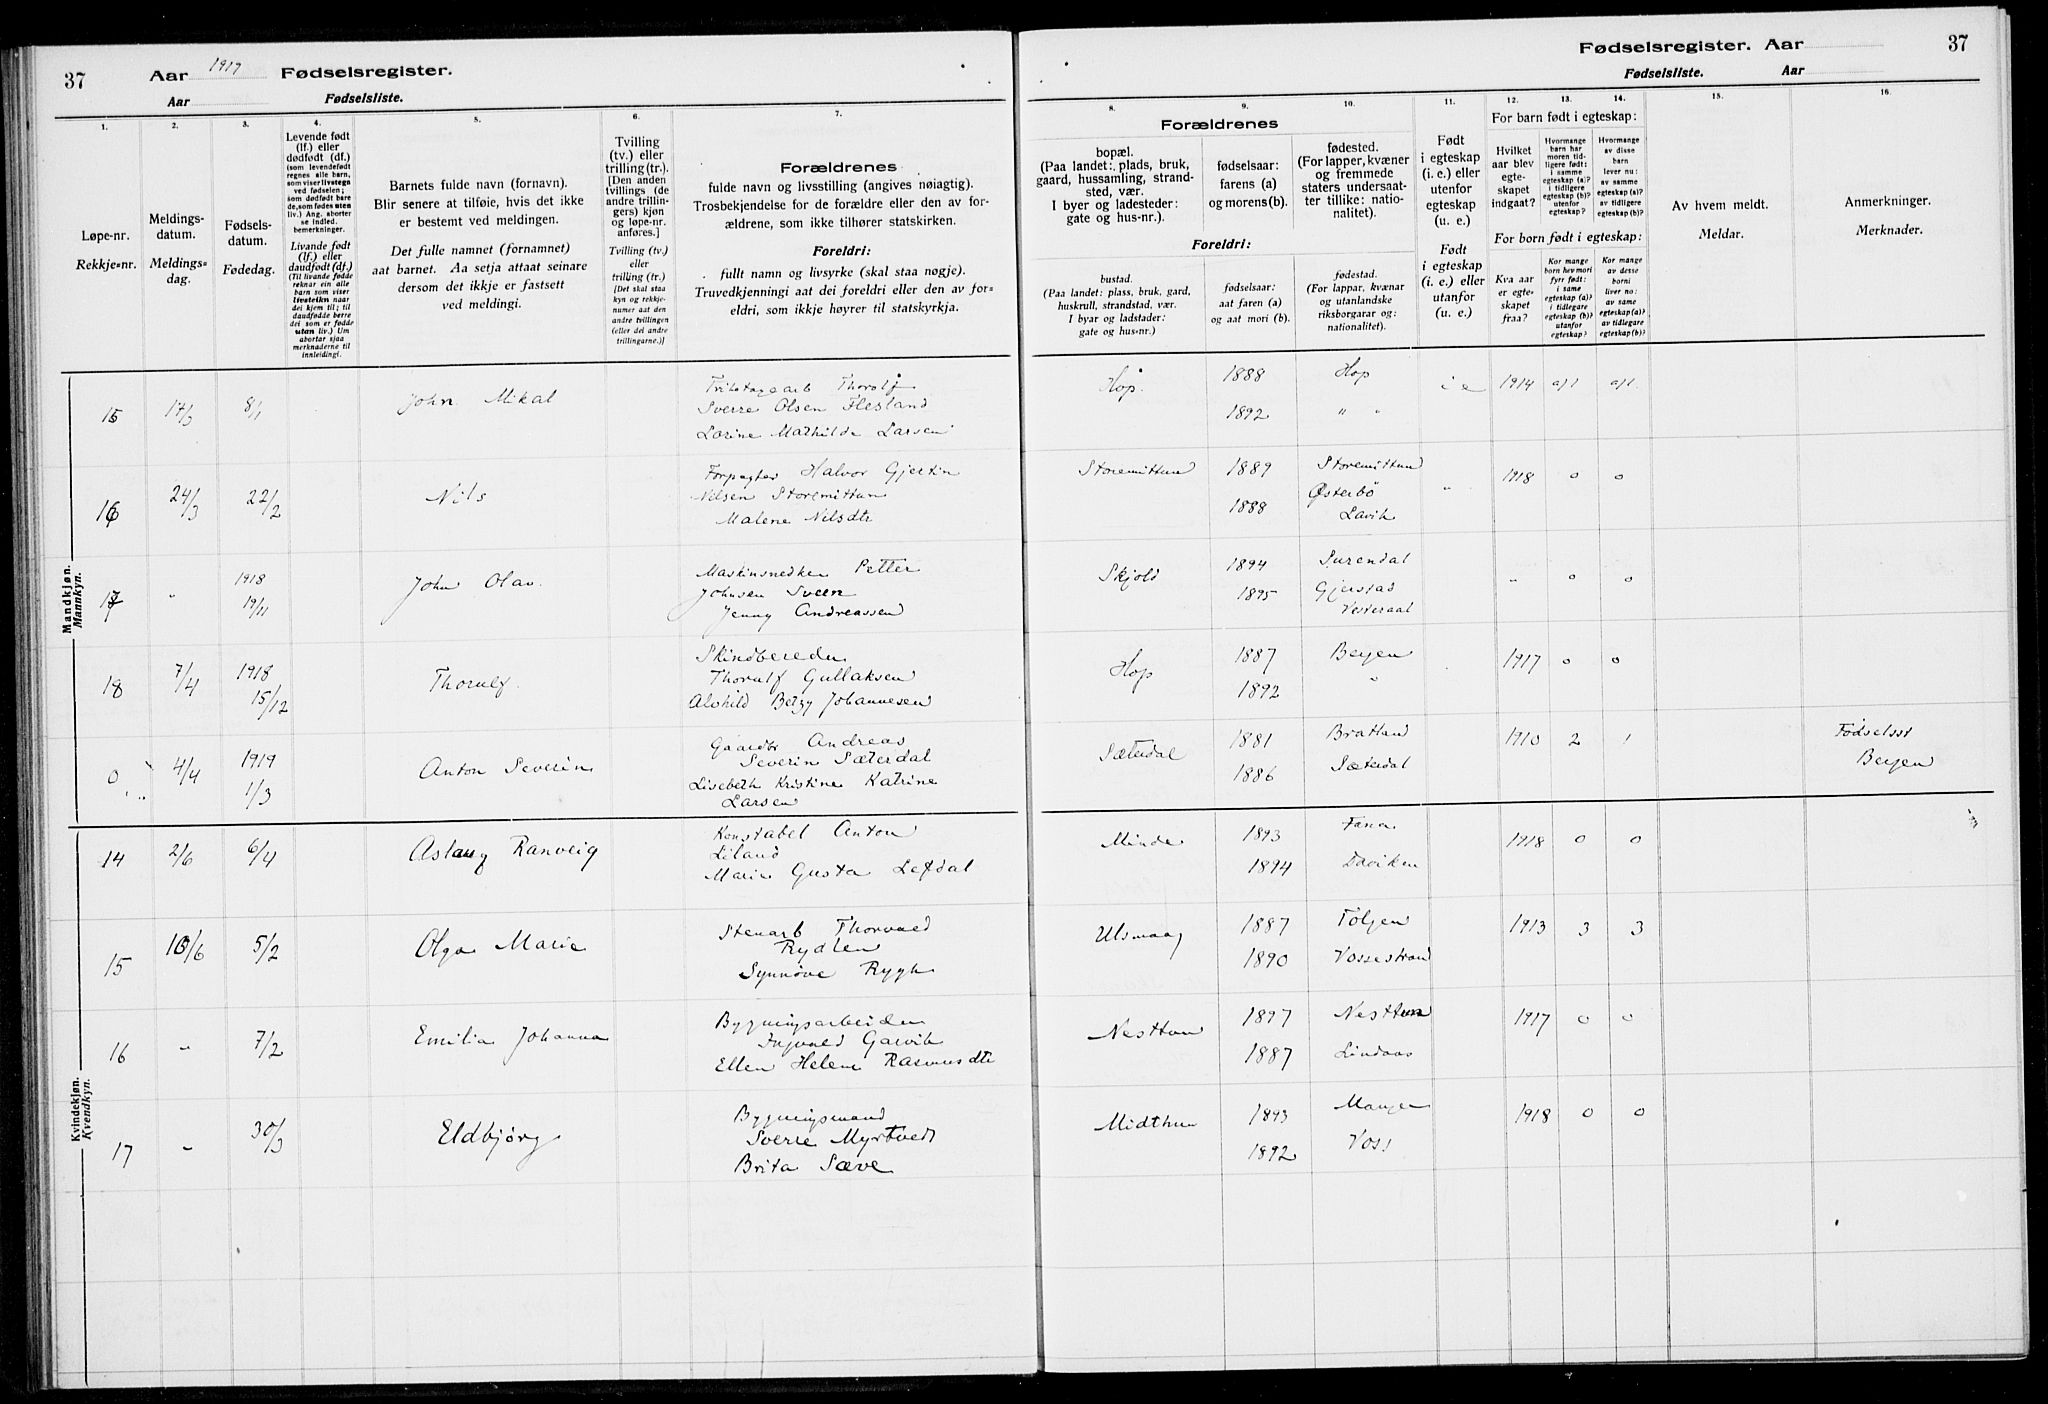 37
Aar 1919 Fødselsregister.
Aar Fødselsliste.
1.
Løpe-nr.
Rekkje=nr.
2.
Meldings-
datum.
Meldings=
dag.
3.
Fødsels-
datum.
Fødedag.
4.
Levende født
(lf.) eller
dødfødt (df.)
(som levendefødt
regnes alle barn,
som viser livstegn
ved fødselen;
som dødfødt bare
de, som fødes uten
liv.) Ang. aborter
se indled.
bemerkninger.
Livande født
(lf.) eller
daudfødt (df.)
(Til livande fødde
reknar ein alle
barn som viser
livsteikn naar
dei kjem til; til
daudfødde berre
dei som er fødde
utan liv.) Um
abortar sjaa
merknaderne til
innleidingi.
5.
Barnets fulde navn (fornavn).
Blir senere at tilføie, hvis det ikke
er bestemt ved meldingen.
Det fulle namnet (fornamnet)
aat barnet. Aa setja attaat seinare
dersom det ikkje er fastsett
ved meldingi.
6.
Tvilling
(tv.) eller
trilling (tr.).
[Den anden
tvillings (de
andre trillin-
gers) kjøn
og løpe-nr.
anføres.]
Tvilling (tv.)
eller
trilling (tr.)
[Det skal staa
kyn og rekkje-
numer aat den
andre tvillingen
(eller dei andre
trillingarne.)]
7.
Forældrenes
fulde navn og livsstilling (angives nøiagtig).
Trosbekjendelse for de forældre eller den av for-
ældrene, som ikke tilhører statskirken.
Foreldri:
fullt namn og livsyrke (skal staa nøgje).
Truvedkjenningi aat dei foreldri eller den av for-
eldri, som ikkje høyrer til statskyrkja.
Mandkjøn.
Mannkyn.
15 17/3 8/1 John Mikal Trikotagearb Thorolf
Sverre Olsen Flesland
Lorine Mathilde Larsen
16 24/3 22/2 Nils Forpagter Halvor Gjertin
Nilsen Storemittun
Malene Nilsdtr
17 " 1918
19/11 John Olav Maskinsnedker Petter
Johnsen Sveen
Jenny Andreassen
18 7/4 1918
15/12 Thorulf Skindbereder
Thorulf Gullaksen
Alvhild Betzy Johannesen
0 4/4 1919
1/3 Anton Severin Gaardbr Andreas
Severin Sæterdal
Lisebeth Kristine Katrine
Larsen
Kvindekjøn.
Kvendkyn.
14 2/6 6/4 Aslaug Ranveig Konstabel Anton
Liland
Marie Gusta Lefdal
15 10/6 5/2 Olga Marie Stenarb Thorvald
Rydlen
Synnøve Rygh
16 " 7/2 Emilia Johanna Bygningsarbeider
Ingvald Garvik
Ellen Helene Rasmusdtr
17 " 30/3 Eldbjørg Bygningsmand
Sverre Myrtvedt
Brita Sæve
Fødselsregister. Aar 37
Fødselsliste. Aar
8.
Forældrenes
bopæl.
(Paa landet: plads, bruk,
gaard, hussamling, strand-
sted, vær.
I byer og ladesteder:
gate og hus-nr.).
Foreldri:
bustad.
(Paa landet: plass, bruk, gard,
huskrull, strandstad, vær.
I byar og ladstader:
gate og hus=nr.)
9.
fødselsaar:
farens (a)
og morens(b).
fødselsaar:
aat faren (a)
og aat mori (b).
10.
fødested.
(For lapper, kvæner
og fremmede
staters undersaat-
ter tillike: natio-
nalitet).
fødestad.
(For lappar, kvænar
og utanlandske
riksborgarar og:
nationalitet).
11.
Født
i egteskap
(i. e.) eller
utenfor
egteskap
(u. e.)
Født
i egteskap
(i. e.) eller
utanfor
egteskap
(u. e.)
12. 13. 14.
For barn født i egteskap:
Hvilket
aar blev
egte-
skapet
indgaat?
Hvormange
barn har
moren tid-
ligere født:
i samme
egteskap (a)?
i tidligere
egteskap (b)?
utenfor
egteskap?
Hvormange
av disse
barn
lever nu:
av samme
egteskap (a)?
av tidligere
egteskap (b)?
For born født i egteskap:
Kva aar
er egte-
skapet
fraa?
Kor mange
born hev mori
fyrr født:
i same
egteskap (a)?
i tidlegare
egteskap (b)?
utanfor
egteskap?
Kor mange
av desse
borni
liver no:
av same
egteskap (a)?
av tidlegare
egteskap (b)?
15.
Av hvem meldt.
Meldar.
16.
Anmerkninger.
Merknader.
Hop. 1888 Hop i e 1914 a/1 a/1.
1892 " "
Storemittun 1889 Storemittun " 1918 0 0
1888 Østerbö
Lavik
Skjold 1894 Surendal " 0 0
1895 Gjerstad
Vesteraal
Hop 1887 Bergen 1917 0 0
1892 "
Sæterdal 1881 Bratland 1910 2 1 Fødselsst
1886 Sæterdal Bergen
Minde 1893 Fana 1918 0 0
1894 Daviken
Ulsmaag 1887 Tolgen 1913 3 3
1890 Vossestrand
Nesttun 1897 Nesttun 1917 0 0
1887 Lindaas
Midthun 1893 Manger 1918 0 0
1892 Voss